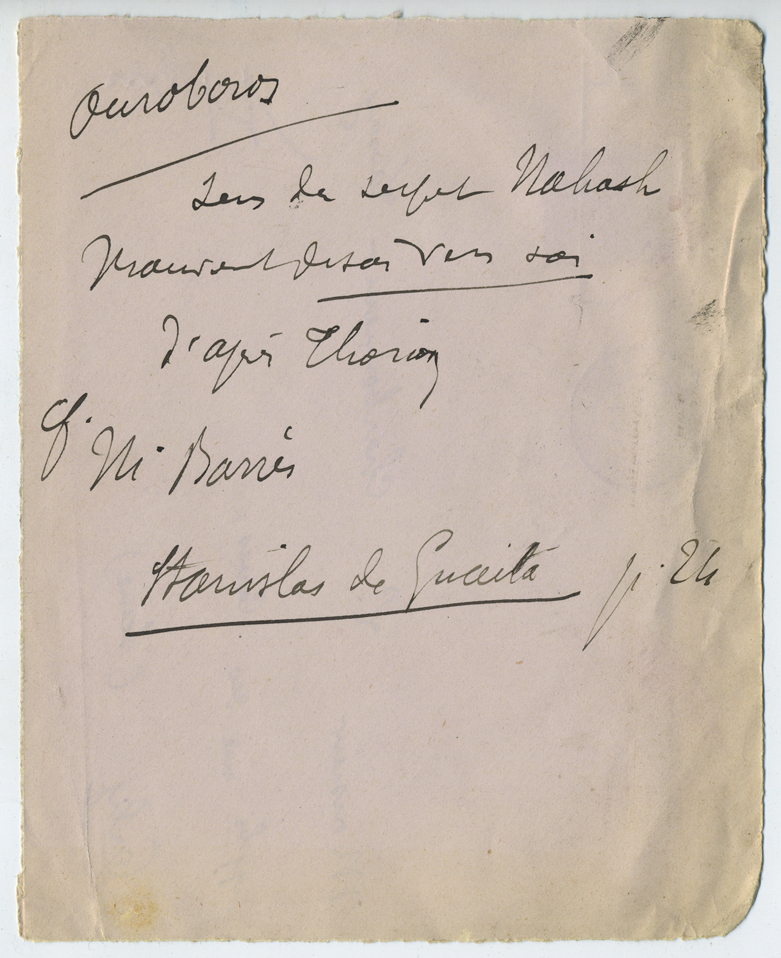 Ouroboros
Sens du serpent Nahash
Mouvement de soi vers soi
d'après Thorion
Cf. M. Barrès
Stanislas de Guaita p. 24